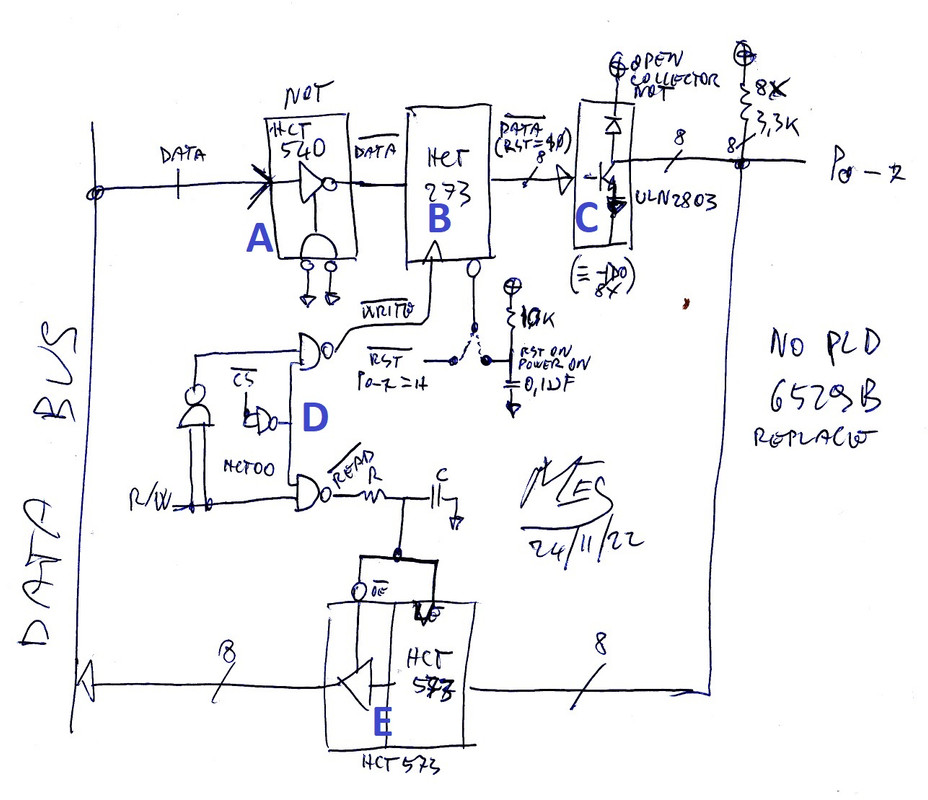 NOT
HCT
540
DATA
DATA
A
HCT
273
B
DATA
(RST=$0)
8
OPEN
COLLECTOR
NOT
C
ULN2803
8X
3,3K
8
8
P0-7
WRITE
10K
RST
P0-7=H
RST ON
POWER ON
0,1UF
CS
D
HCT00
R/W
READ
R
C
NO PLD
6529B
REPLACE
MES
24/11/22
DATA BUS
OE
HCT
573
E
8
8
HCT573